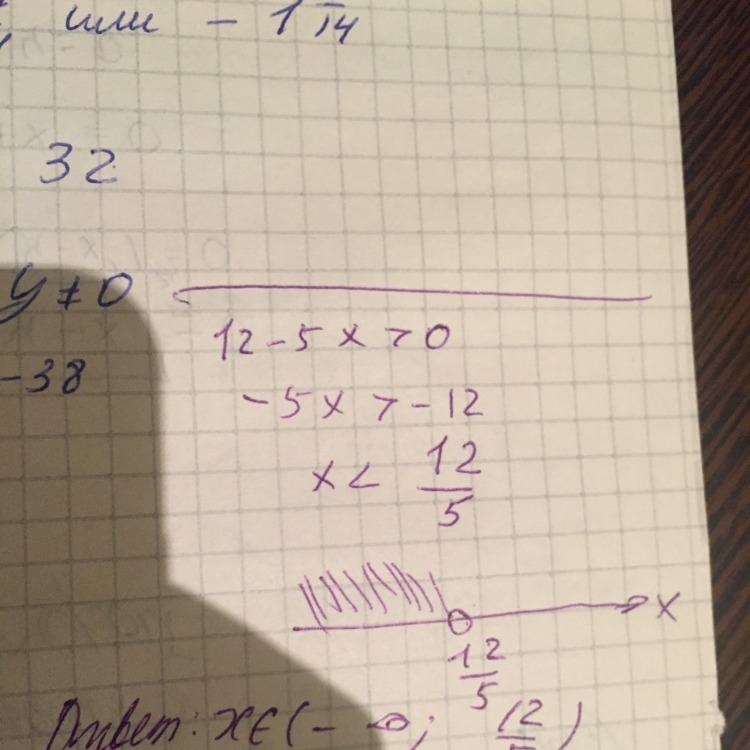 или - 1
32
y ≠ 0
-38
12 - 5x > 0
-5x > -12
x < 12/5
x
12/5
Ответ: x∈(-∞; 12/5)